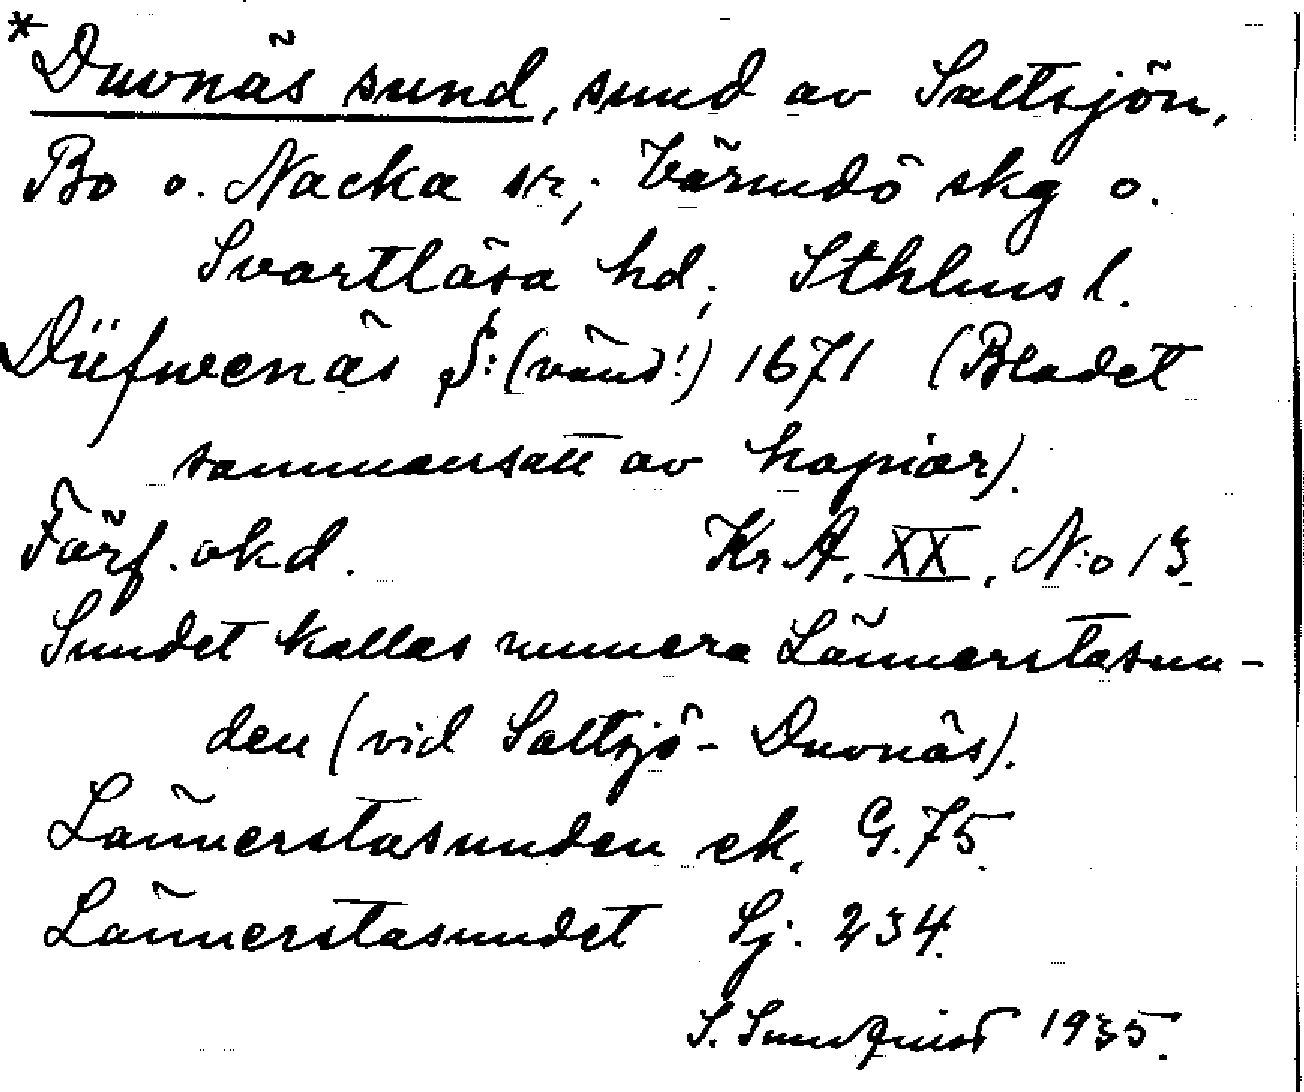 *Duvnäs sund, sund av Saltsjön,
Bo o. Nacka sr; Värmdö skg o.
Svartlösa hd, Sthlms l.
Düfwenäs S: (vänd!) 1671 (Bladet
sammansatt av kopior).
Förf. okd. Kr A. XX, N:o 13
Sundet kallas numera Lännerstasun-
den (vid Saltsjö-Duvnäs).
Lännerstasunden ek. G. 75.
Lännerstasundet Sj. 234.
S. Sundquist 1935.